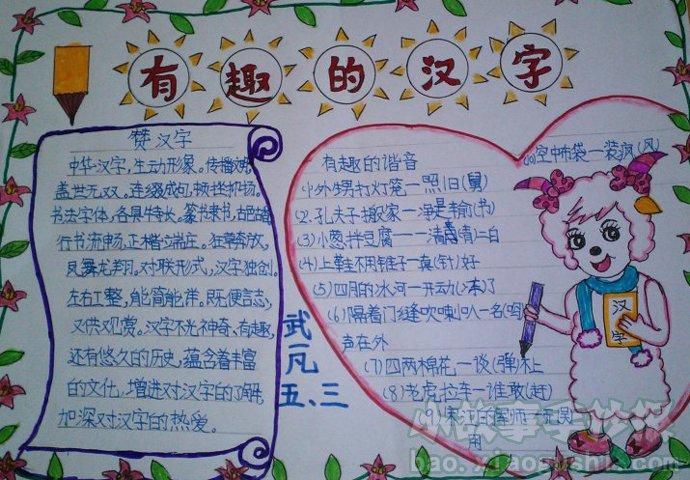 有趣的汉字
赞汉字
中华汉字，生动形象。传播
盖世无双。连缀成句，顿挫抑扬。
书法字体，各具特长，篆书隶书，古色
行书流畅。正楷端庄。狂草奔放，
凤舞龙翔。对联形式，汉字独创。
左右工整，能简能详。既便言志，
又供观赏。汉字不光神奇、有趣，
还有悠久的历史，蕴含着丰富
的文化，增进对汉字的了解，
加深对汉字的热爱。
武
凡
五、三
有趣的谐音
(1)外甥打灯笼一照旧(舅)
(2.孔夫子搬家一净是输(书)
(3)小葱拌豆腐——清(青)二白
(4)上鞋不用锥子一真(针)好
(5)四月的冰河一开动(冻)了
(6)隔着门缝吹喇叭一名(鸣)
声在外
(7)四两棉花一谈(弹)不上
(8)老虎拉车一谁敢(赶)
空中布袋一装疯(风)
汉字
小故事手抄报
bao.xiaogushi.com